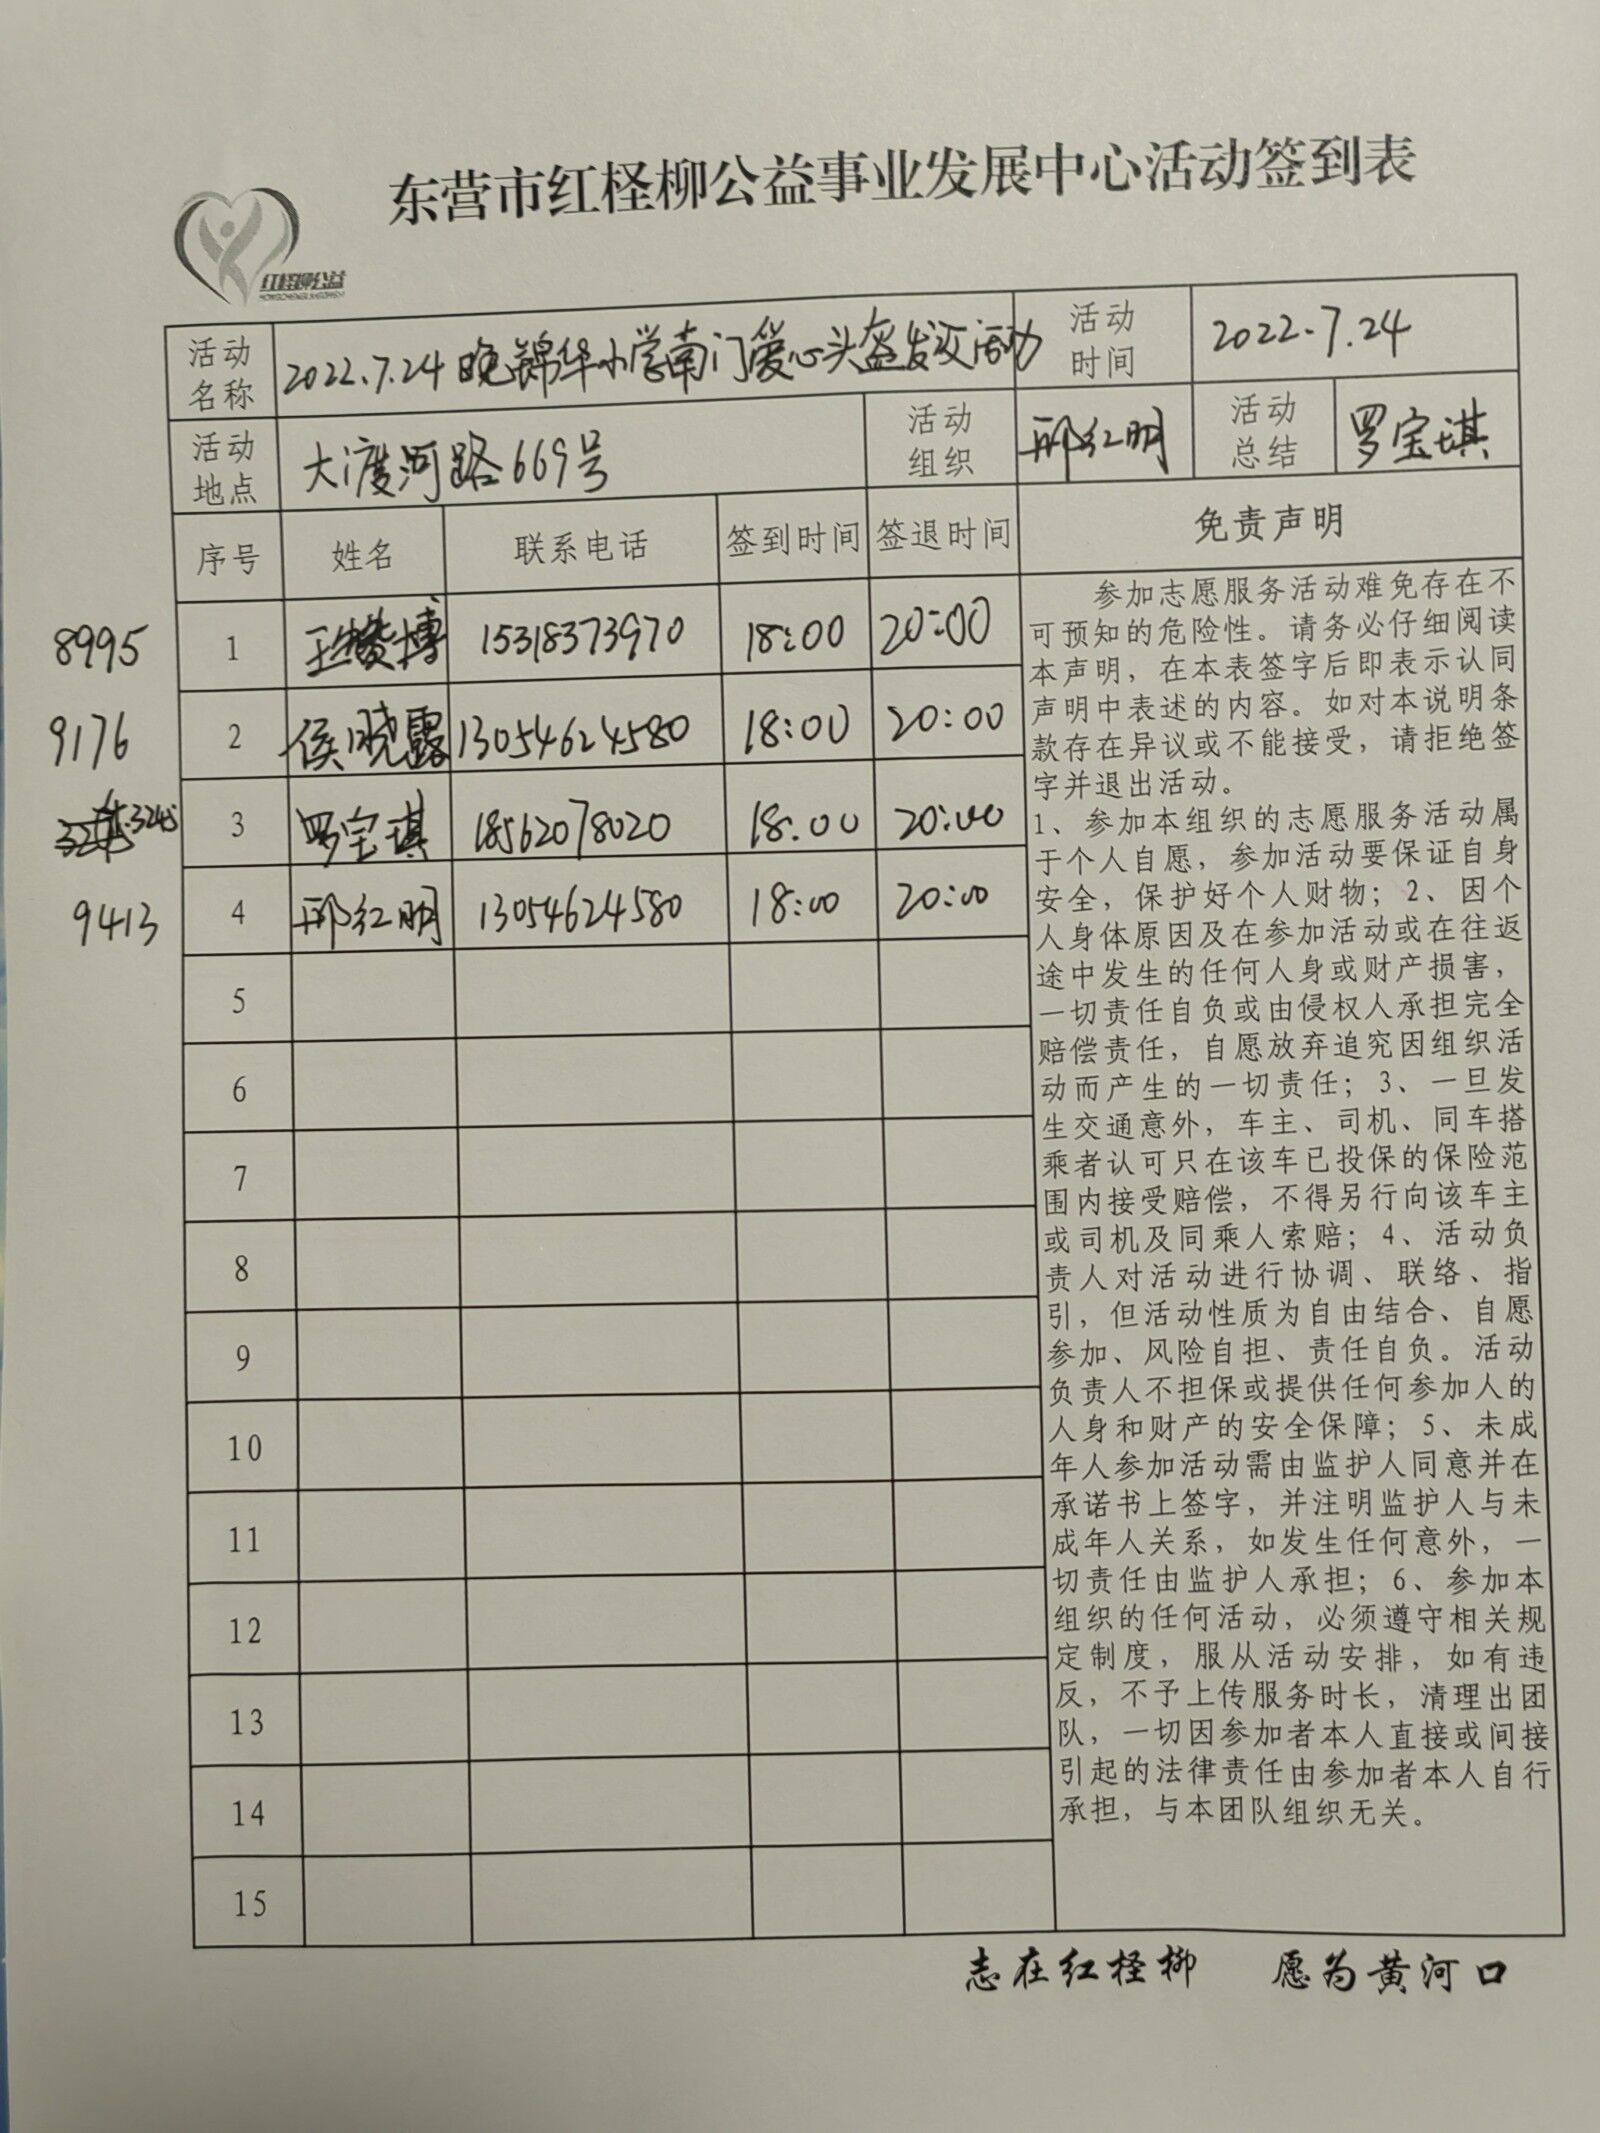 东营市红柽柳公益事业发展中心活动签到表
红柽柳公益
活动名称 2022.7.24晚锦华小学南门爱心头盔发放活动 活动时间 2022.7.24
活动地点 大渡河路669号 活动组织 邢红明 活动总结 罗宝琪
序号 姓名 联系电话 签到时间 签退时间 免责声明
8995 1 15318373970 18:00 20:00
9176 2 侯晓露 13054624580 18:00 20:00
3245 3 罗宝琪 18562078020 18:00 20:00
9413 4 邢红明 13054624580 18:00 20:00
5
6
7
8
9
10
11
12
13
14
15
参加志愿服务活动难免存在不
可预知的危险性。请务必仔细阅读
本声明，在本表签字后即表示认同
声明中表述的内容。如对本说明条
款存在异议或不能接受，请拒绝签
字并退出活动。
1、参加本组织的志愿服务活动属
于个人自愿，参加活动要保证自身
安全，保护好个人财物；2、因个
人身体原因及在参加活动或在往返
途中发生的任何人身或财产损害，
一切责任自负或由侵权人承担完全
赔偿责任，自愿放弃追究因组织活
动而产生的一切责任；3、一旦发
生交通意外，车主、司机、同车搭
乘者认可只在该车已投保的保险范
围内接受赔偿，不得另行向该车主
或司机及同乘人索赔；4、活动负
责人对活动进行协调、联络、指
引，但活动性质为自由结合、自愿
参加、风险自担、责任自负。活动
负责人不担保或提供任何参加人的
人身和财产的安全保障；5、未成
年人参加活动需由监护人同意并在
承诺书上签字，并注明监护人与未
成年人关系，如发生任何意外，一
切责任由监护人承担；6、参加本
组织的任何活动，必须遵守相关规
定制度，服从活动安排，如有违
反，不予上传服务时长，清理出团
队，一切因参加者本人直接或间接
引起的法律责任由参加者本人自行
承担，与本团队组织无关。
志在红柽柳 愿为黄河口